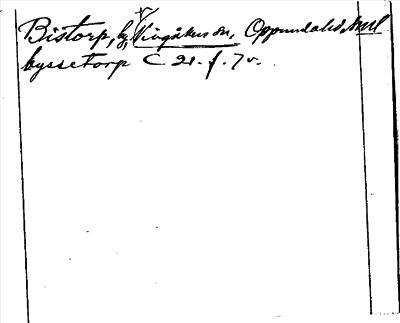 Bistorp, by, Vingåkers sn, Oppunda hd, Sml
byssetorp C 21. f. 7v.